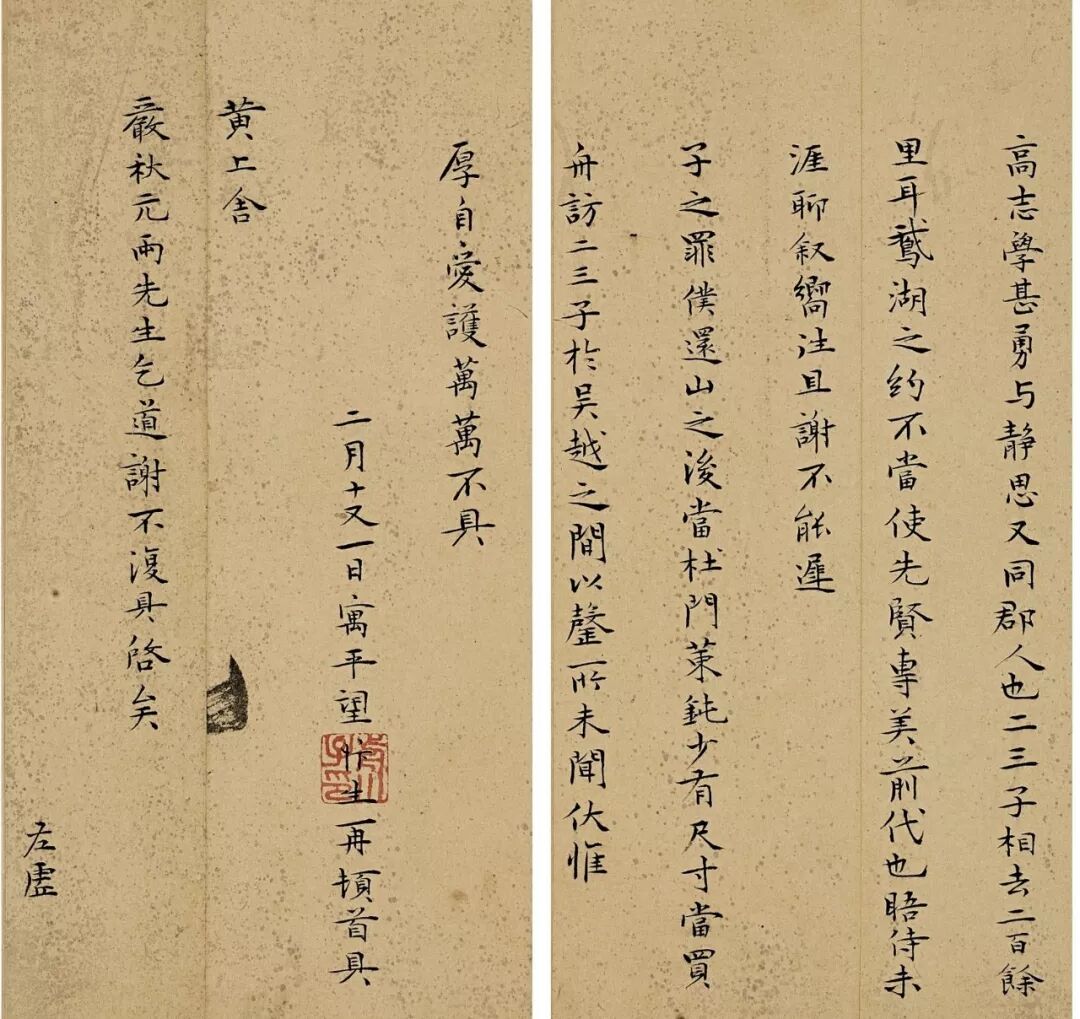 高志學甚勇与靜思又同郡人也二三子相去二百餘
里耳鵞湖之約不當使先賢專美前代也晤待未
涯聊叙嚮往且謝不能遲
子之罪僕還山之後當杜門策鈍少有尺寸當買
舟訪二三子於吴越之間以罄所未聞伏惟
厚自愛護萬萬不具
二月十又一日寓平望忭生再頓首具
黄上舍
嚴秋元兩先生乞道謝不復具啓矣
左虛